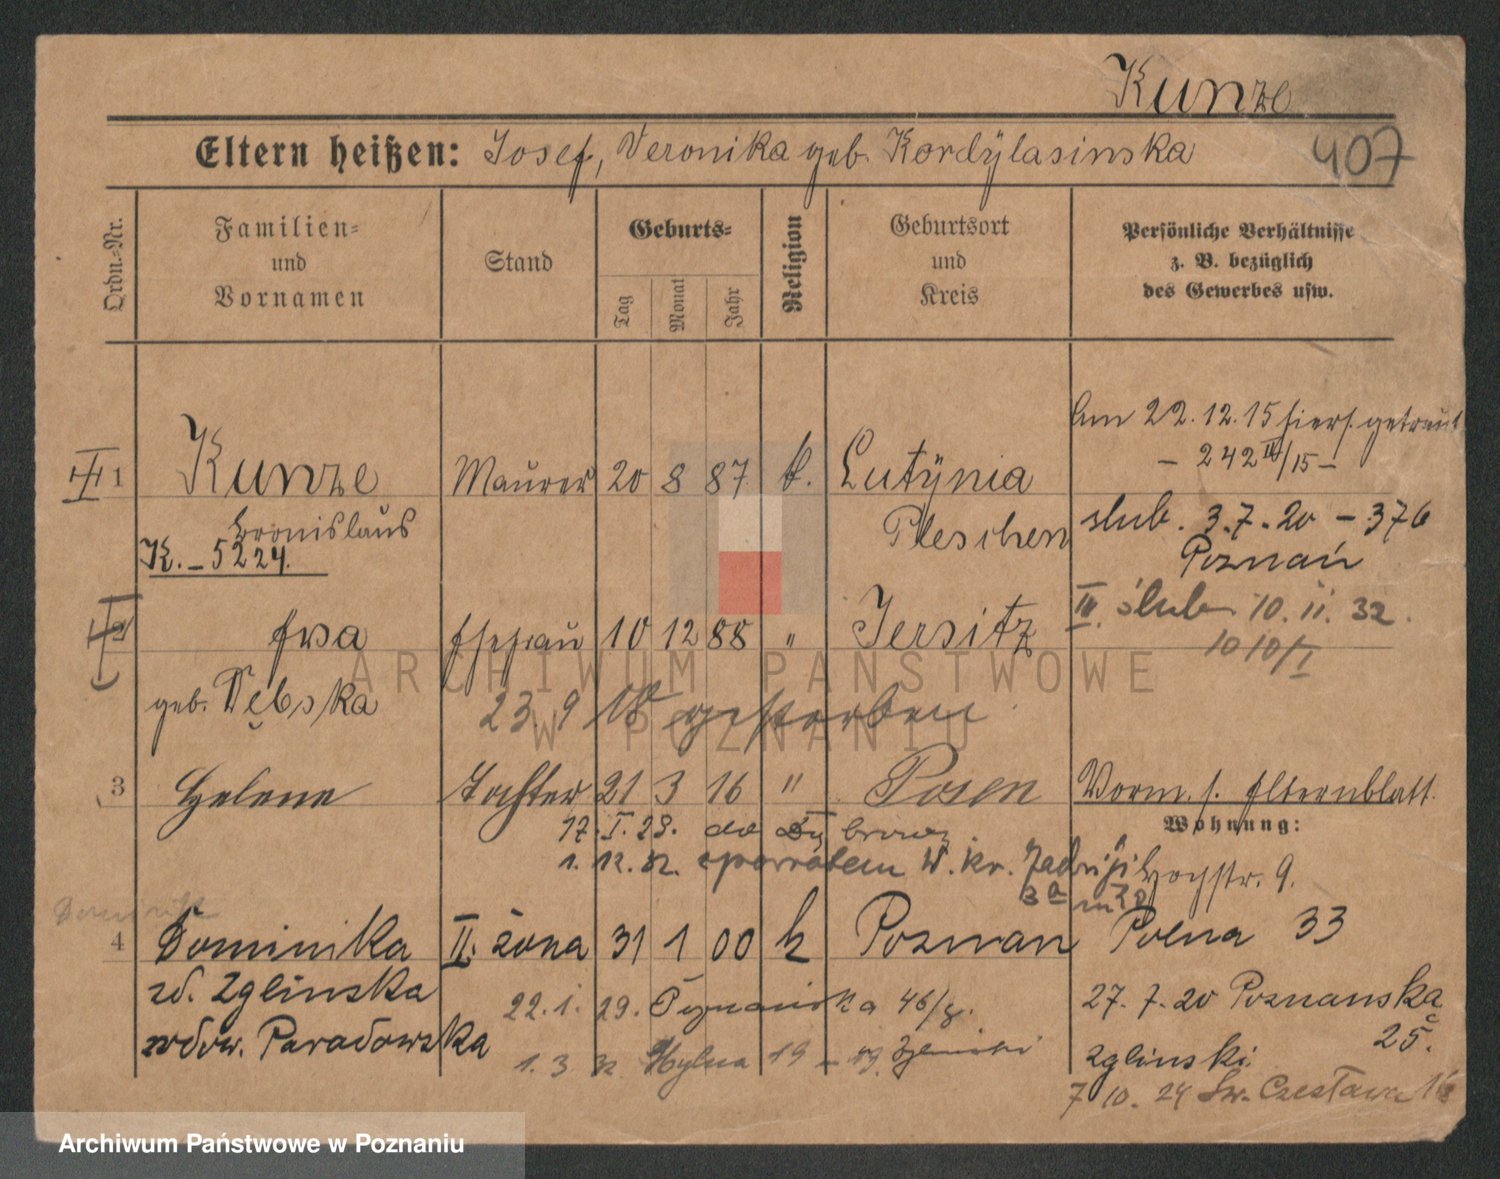 Kunze
407
Eltern heißen: Josef, Veronika geb. Kordÿlasinska
Ordn.-Nr.
Familien-
und
Vornamen
Stand
Geburts-
Tag
Monat
Jahr
Religion
Geburtsort
und
Kreis
Persönliche Verhältnisse
z. B. bezüglich
des Gewerbes usw.
Am 22.12.15 hiers. getraut
- 242 III/15 -
1 Kunze Maurer 20 8 87 k. Lutÿnia
Bronislaus Pleschen
K. - 5224.
slub. 3.7.20 - 376
Poznań
III. ślub 10.11.32.
1010/I
2 Ewa Ehefrau 10 12 88 " Jersitz
geb. Dębska 23 9 18 gestorben
3 Helene Tochter 21 3 16 " Posen
Vorm. s. Elternblatt
Wohnung:
17. I. 28. do
1. 12. 32. z powrotem W. kr. Jadwigi
Hochstr. 9.
4 Dominika II. żona 31 1 00 k Poznan
Polna 33
zd. Zglinska
wdow. Paradowska
22.1.29. Poznańska 46/8.
27.7.20 Poznanska
25.
1.3.32. Wylna 19 - 19. Zglinski
Zglinski
7 10. 24 Św. Czesława
ARCHIWUM PAŃSTWOWE
W POZNANIU
Archiwum Państwowe w Poznaniu